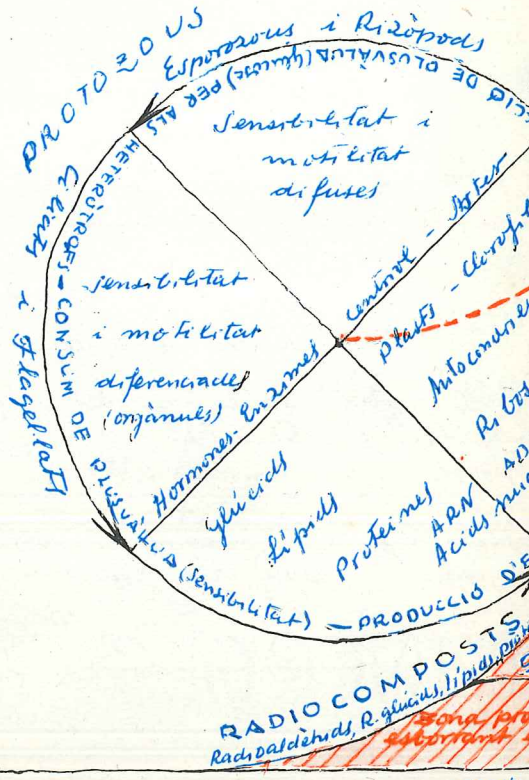 PROTOZOUS
Esporozous i Rizòpods
Ciliats i Flagel·lats
CIÓ DE PLUSVÀLUA (glucosa) PER ALS HETERÒTROFS - CONSUM DE PLUSVÀLUA (sensibilitat) - PRODUCCIÓ D'E
Sensibilitat i
motilitat
difuses
sensibilitat
i motilitat
diferenciades
(orgànuls)
Hormones - Enzimes
Centríol - Àster
Plasts - Clorofil
Mitocondries
Ribos
Glúcids
Lípids
Proteïnes
ARN AD
Àcids nuc
RADIOCOMPOSTS
Radioaldèhids, R-glúcids, lípids, prot
zona pro
esborrant